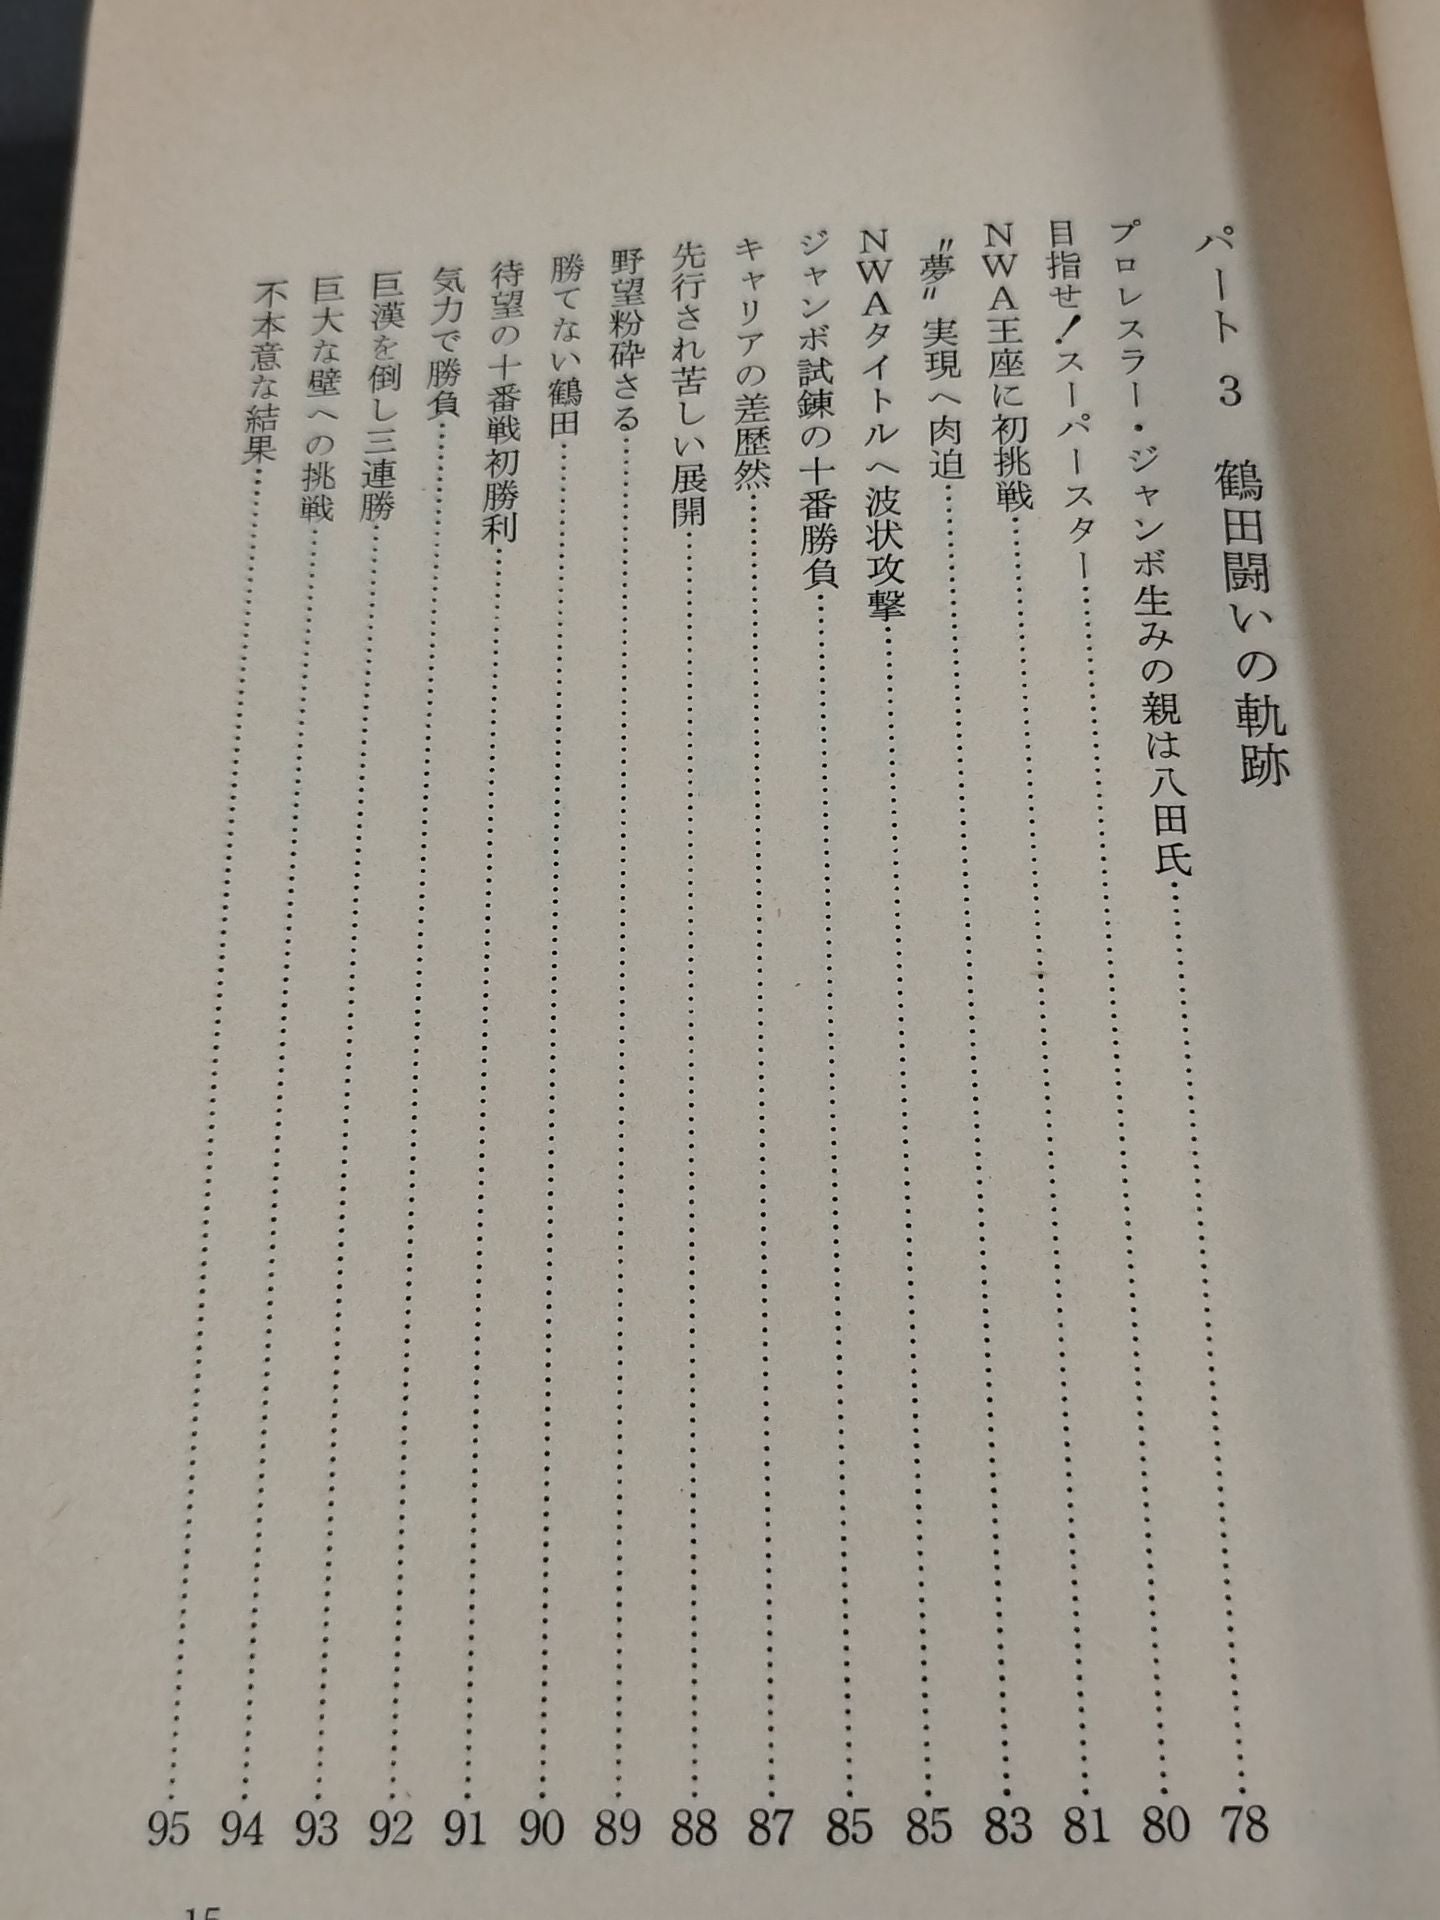 パート 3 鶴田闘いの軌跡
プロレスラー・ジャンボ生みの親は八田氏……78
目指せ！スーパースター……80
NWA王座に初挑戦……81
〝夢〟実現へ肉迫……83
NWAタイトルへ波状攻撃……85
ジャンボ試錬の十番勝負……85
キャリアの差歴然……87
先行され苦しい展開……88
野望粉砕さる……89
勝てない鶴田……90
待望の十番戦初勝利……91
気力で勝負……92
巨漢を倒し三連勝……93
巨大な壁への挑戦……94
不本意な結果……95
15